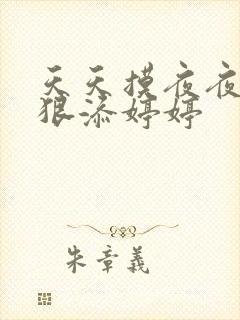 天天摸夜夜
狠添婷婷
朱章義